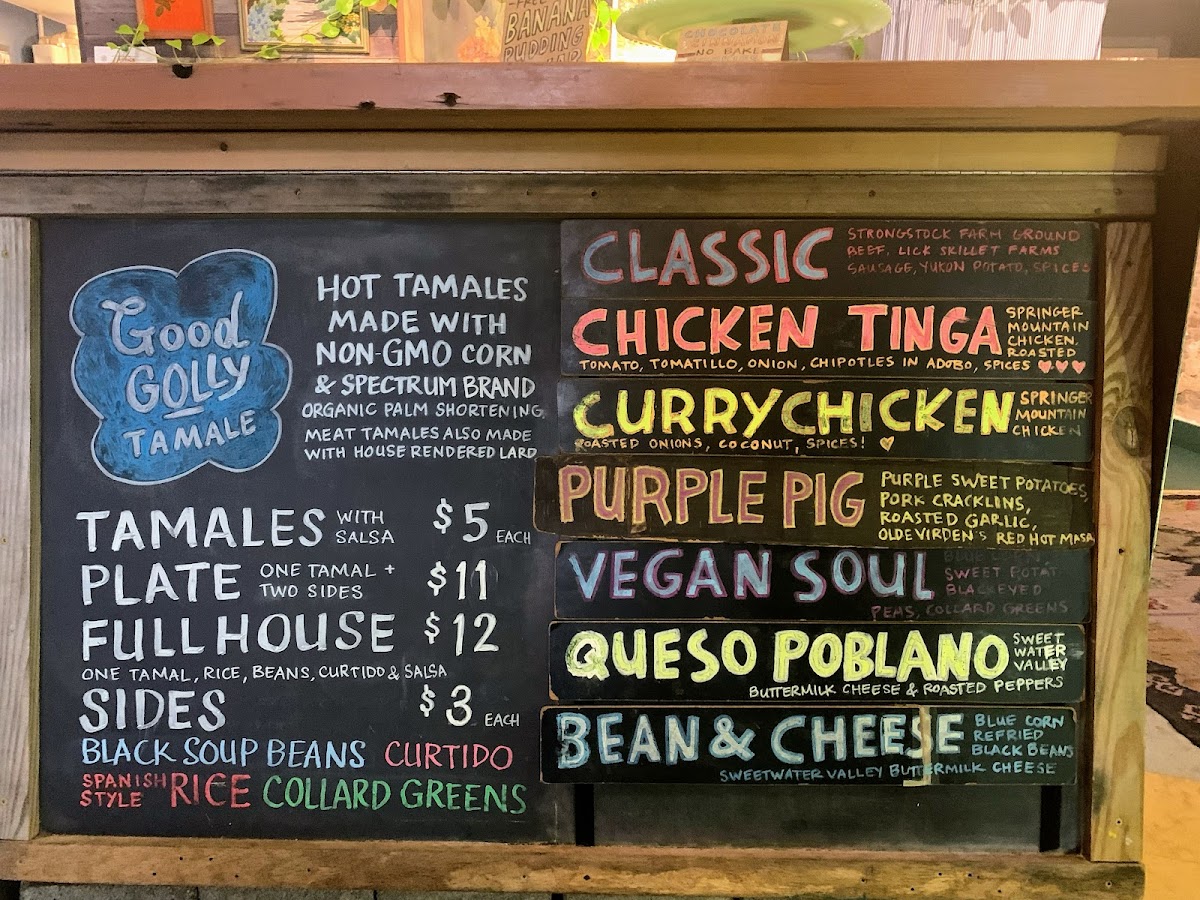 BANANA
PUDDING
CHOCOLATE
NO BAKE
Good
GOLLY
TAMALE
HOT TAMALES
MADE WITH
NON-GMO CORN
& SPECTRUM BRAND
ORGANIC PALM SHORTENING
MEAT TAMALES ALSO MADE
WITH HOUSE RENDERED LARD
TAMALES WITH SALSA $5 EACH
PLATE ONE TAMAL + TWO SIDES $11
FULL HOUSE $12
ONE TAMAL, RICE, BEANS, CURTIDO & SALSA
SIDES $3 EACH
BLACK SOUP BEANS CURTIDO
SPANISH STYLE RICE COLLARD GREENS
CLASSIC
STRONGSTOCK FARM GROUND
BEEF, LICK SKILLET FARMS
SAUSAGE, YUKON POTATO, SPICES
CHICKEN TINGA
SPRINGER
MOUNTAIN
CHICKEN.
ROASTED
TOMATO, TOMATILLO, ONION, CHIPOTLES IN ADOBO, SPICES
CURRY CHICKEN
SPRINGER
MOUNTAIN
CHICKEN
ROASTED ONIONS, COCONUT, SPICES!
PURPLE PIG
PURPLE SWEET POTATOES,
PORK CRACKLINS,
ROASTED GARLIC,
OLDE VIRDEN'S RED HOT MASA
VEGAN SOUL
SWEET POTAT
BLACKEYED
PEAS, COLLARD GREENS
QUESO POBLANO
SWEET
WATER
VALLEY
BUTTERMILK CHEESE & ROASTED PEPPERS
BEAN & CHEESE
BLUE CORN
REFRIED
BLACK BEANS
SWEETWATER VALLEY BUTTERMILK CHEESE